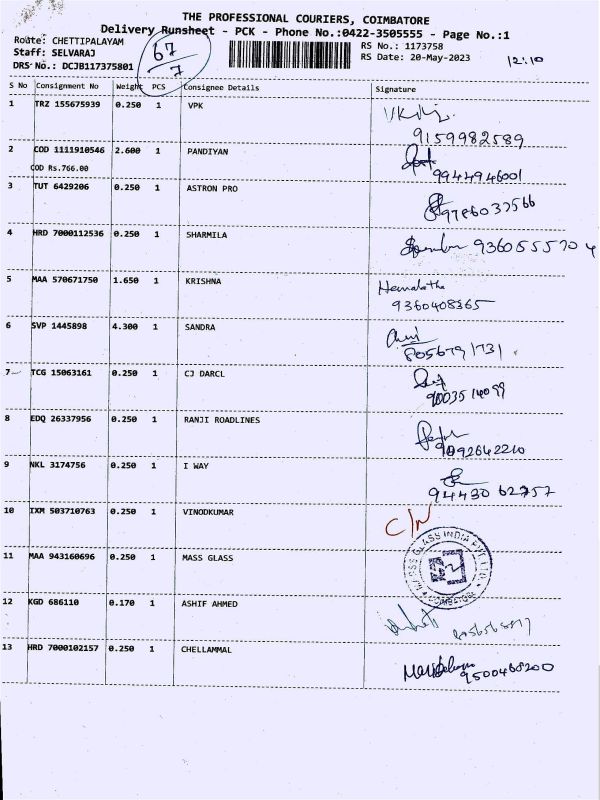 THE PROFESSIONAL COURIERS, COIMBATORE
Delivery Runsheet - PCK - Phone No.:0422-3505555 - Page No.:1
Route: CHETTIPALAYAM
RS No.: 1173758
Staff: SELVARAJ
RS Date: 20-May-2023
12:10
DRS No.: DCJB117375801
67/7
S No Consignment No Weight PCS Consignee Details Signature
1 TRZ 155675939 0.250 1 VPK
9159982589
2 COD 1111910546 2.600 1 PANDIYAN
COD Rs.766.00
9944946001
3 TUT 6429206 0.250 1 ASTRON PRO
9786037566
4 HRD 7000112536 0.250 1 SHARMILA
9360555704
5 MAA 570671750 1.650 1 KRISHNA
Hemalatha
9360408365
6 SVP 1445898 4.300 1 SANDRA
8056791731
7 TCG 15063161 0.250 1 CJ DARCL
9003514099
8 EDQ 26337956 0.250 1 RANJI ROADLINES
9092642210
9 NKL 3174756 0.250 1 I WAY
9443062757
10 IXM 503710763 0.250 1 VINODKUMAR
C/N
11 MAA 943160696 0.250 1 MASS GLASS
MASS GLASS INDIA PVT. LTD.
COIMBATORE
12 KGD 686110 0.170 1 ASHIF AHMED
13 HRD 7000102157 0.250 1 CHELLAMMAL
9500468200